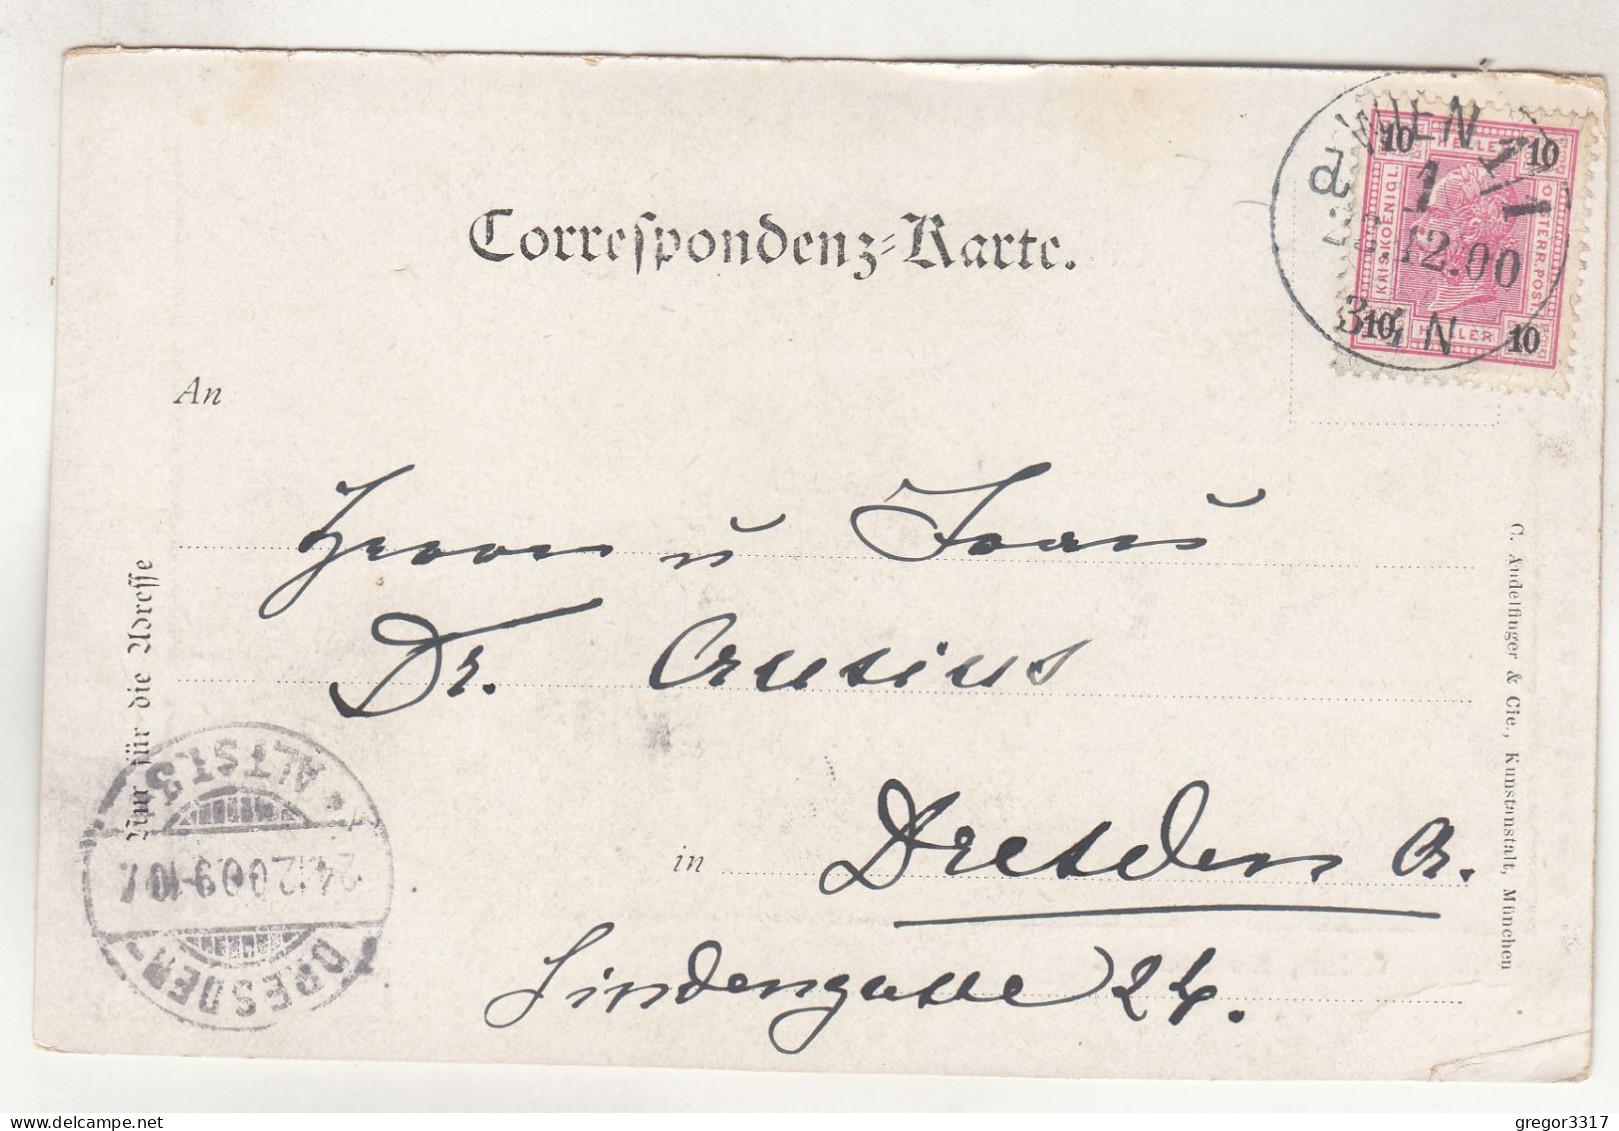 Correspondenz-Karte.
WIEN 1/1
1
12.00
3 4 N
10 HELLER 10
KAIS. KOENIGL.
OESTERR. POST
10 HELLER 10
An
Herrn u Frau
Dr. Crusius
in Dresden A.
Lindengasse 24.
Nur für die Adresse
C. Andelfinger & Cie., Kunstanstalt, München
DRESDEN-
ALTST. 3
24.12.00.9-10V.
gregor3317